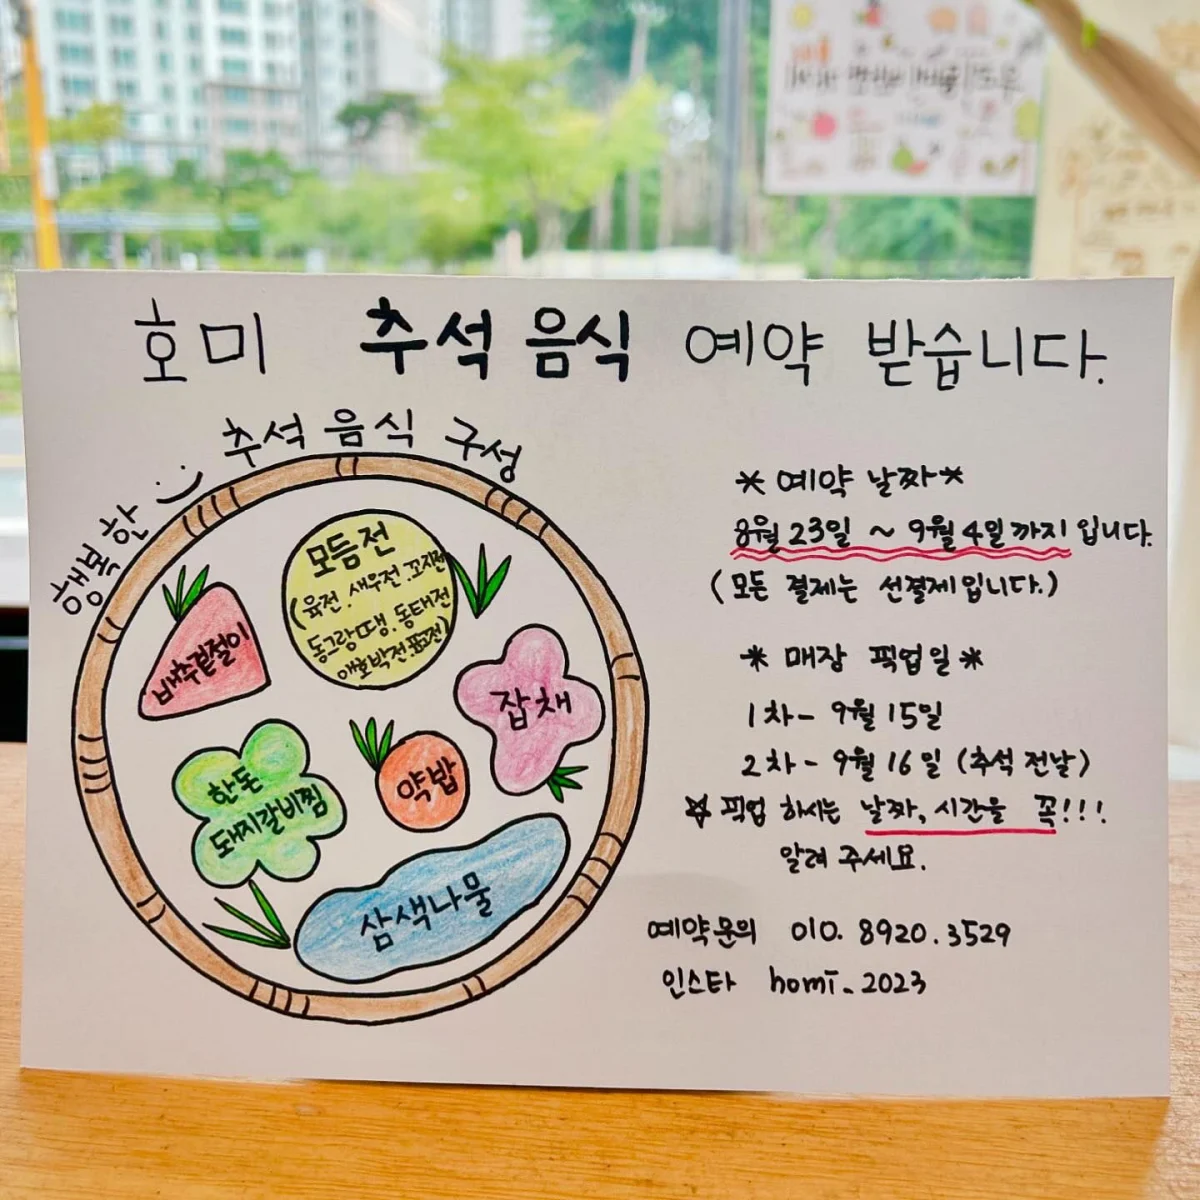 호미 추석 음식 예약 받습니다.
행복한 추석 음식 구성
모듬전
(육전.새우전.꼬지전
동그랑땡.동태전
애호박전.표고전)
배추겉절이
잡채
한돈
돼지갈비찜
약밥
삼색나물
*예약 날짜*
8월 23일 ~ 9월 4일까지 입니다.
(모든 결제는 선결제입니다.)
* 매장 픽업일 *
1차 - 9월 15일
2차 - 9월 16일 (추석 전날)
☆ 픽업 하시는 날짜, 시간을 꼭!!!
알려 주세요.
예약문의 010. 8920. 3529
인스타 homi_2023